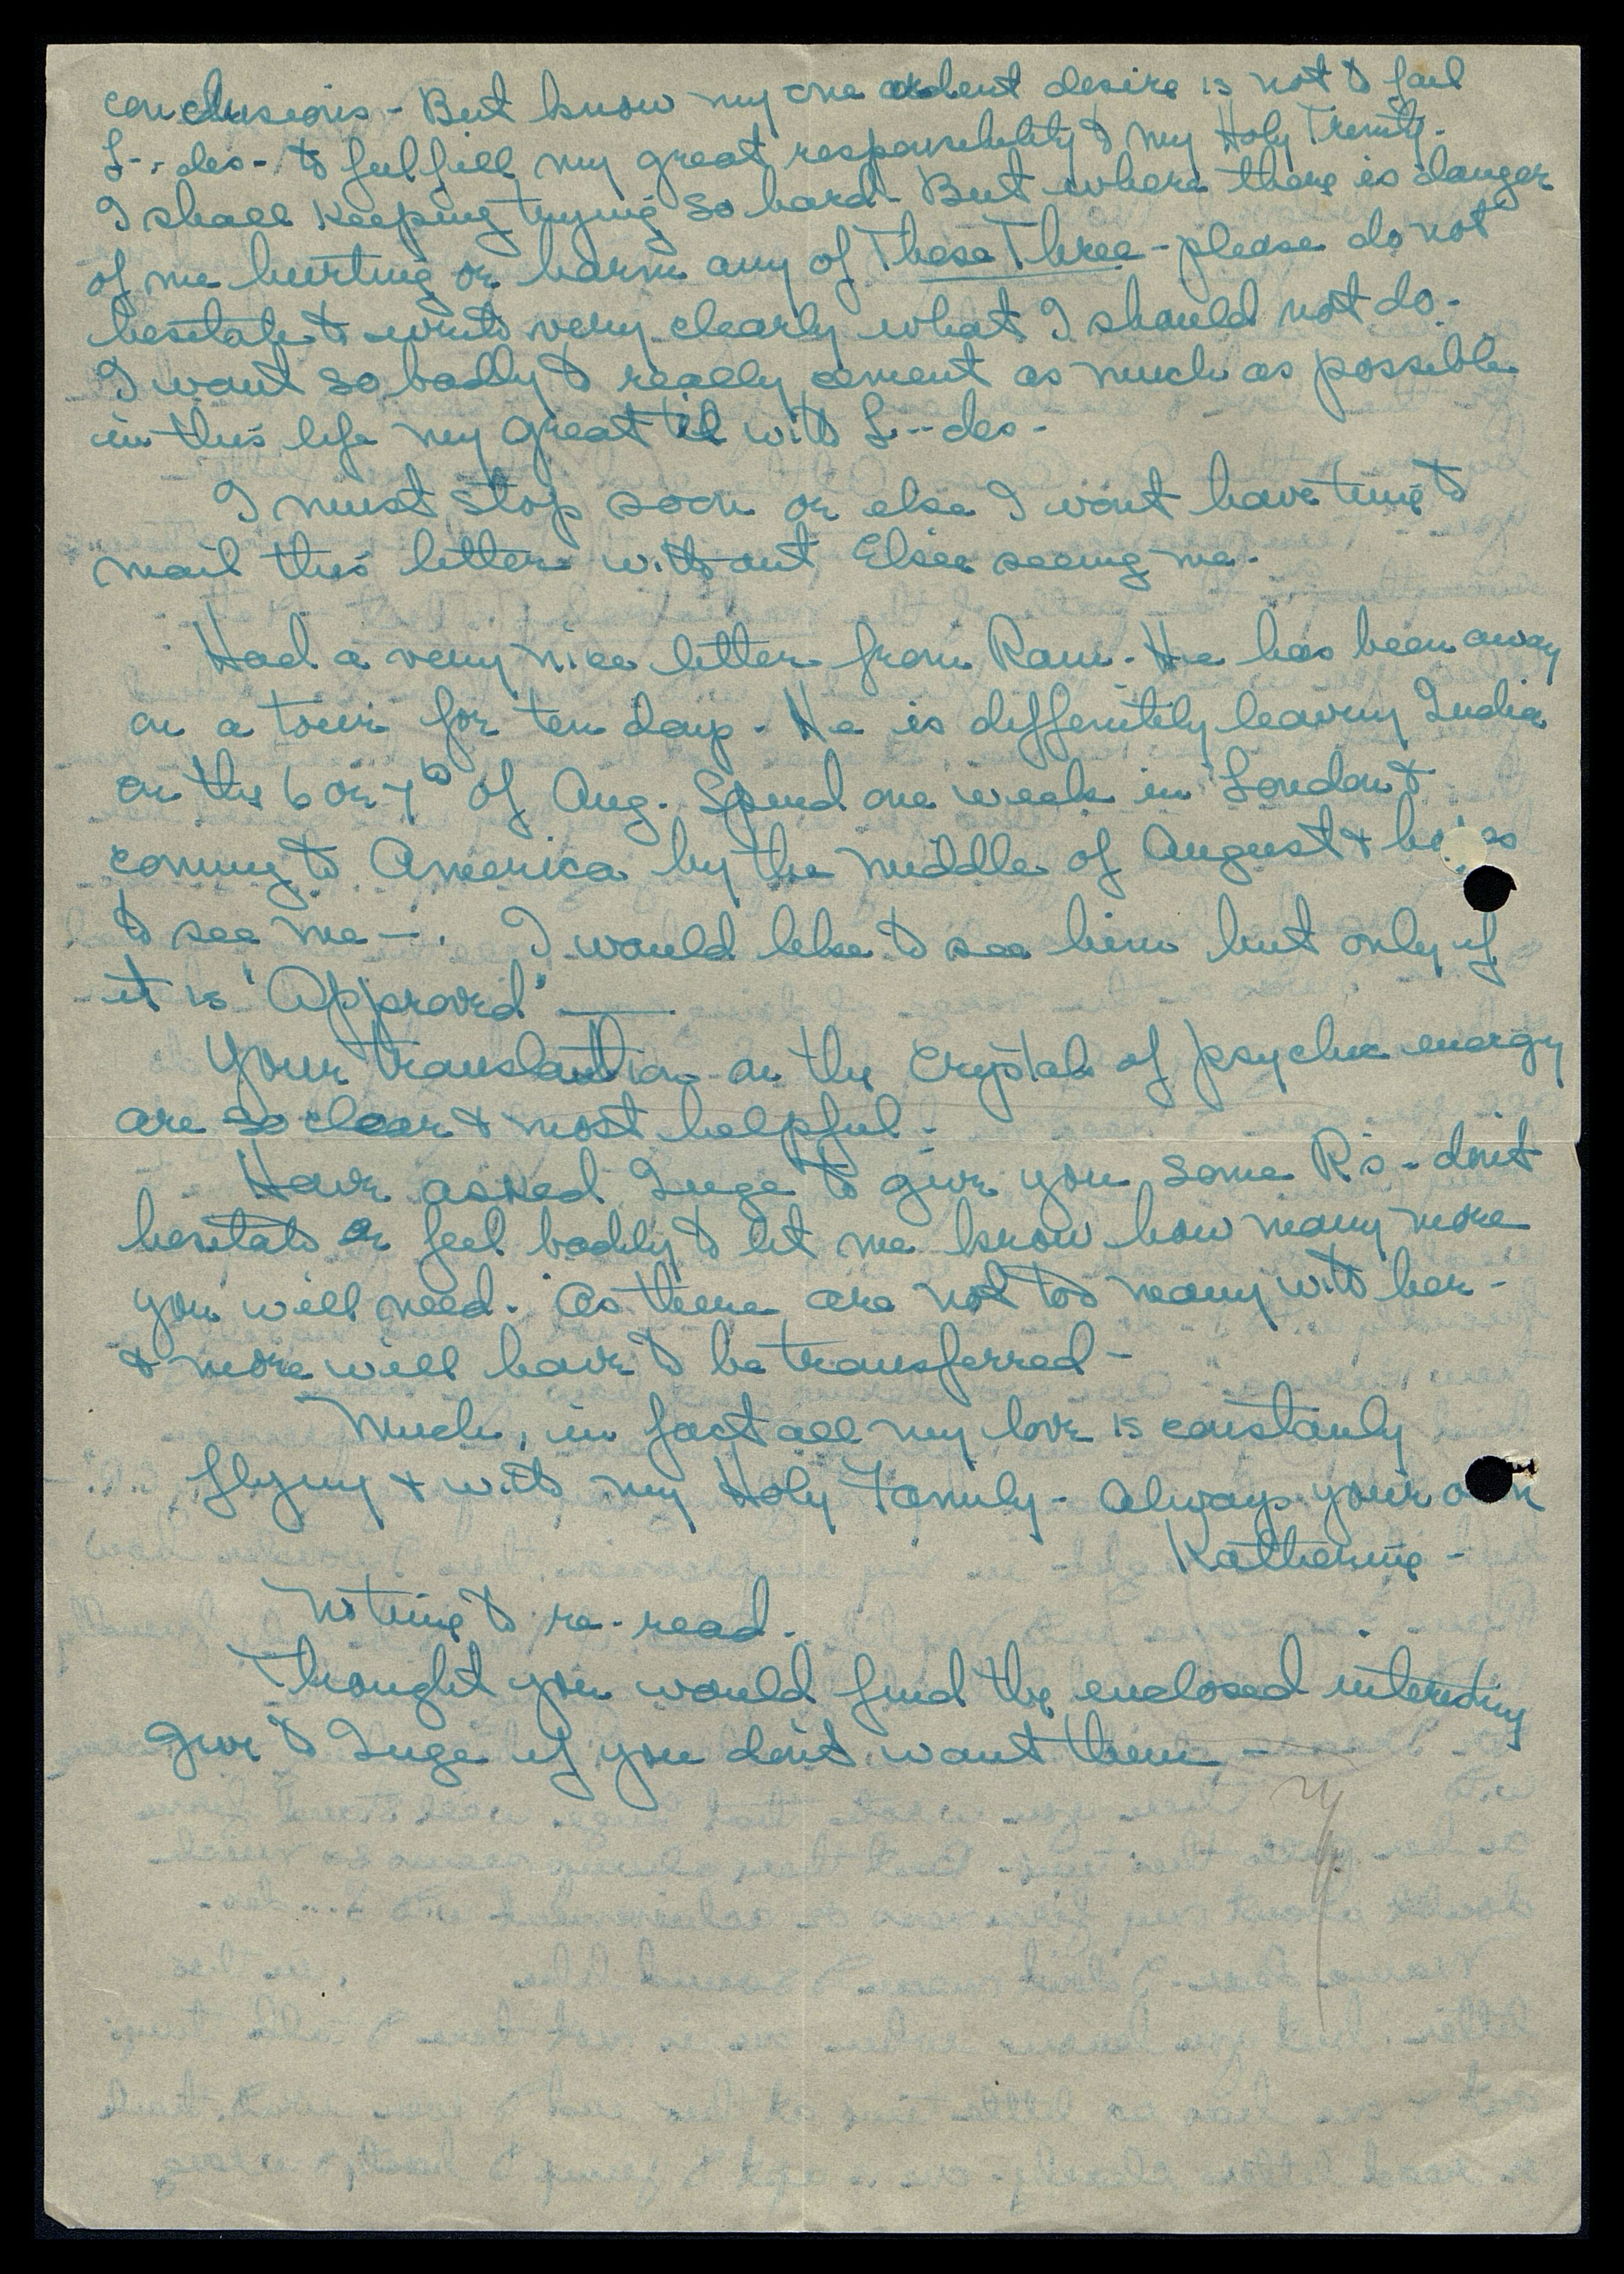 conclusions - But know my one ardent desire is not to fail
L--des- to fulfill my great responsibility to my Holy Trinity.
I shall keeping trying so hard - But where there is danger
of me hurting or harm any of These Three - please do not
hesitate to write very clearly what I should not do -
I want so badly to really cement as much as possible
in this life my great tie with L--des -
I must stop soon or else I wont have time to
mail this letter without Elsie seeing me.
Had a very nice letter from Ram. He has been away
on a tour for ten days - He is diffenitely leaving India
on the 6 or 7th of Aug. Spend one week in London &
coming to America by the middle of August & hopes
to see me - . I would like to see him but only if
it is "Approved"
Your translation on the Crystals of psychic energy
are so clear & most helpful.
Have asked Inge to give you some R's - dont
hesitate or feel badly to let me know how many more
you will need. As there are not too many with her -
& more will have to be transferred -
Much, in fact all my love is constanly
flying & with my Holy Family - Always your own
Katherine -
No time to re-read.
Thought you would find the enclosed interesting
Give to Inge if you dont want them -